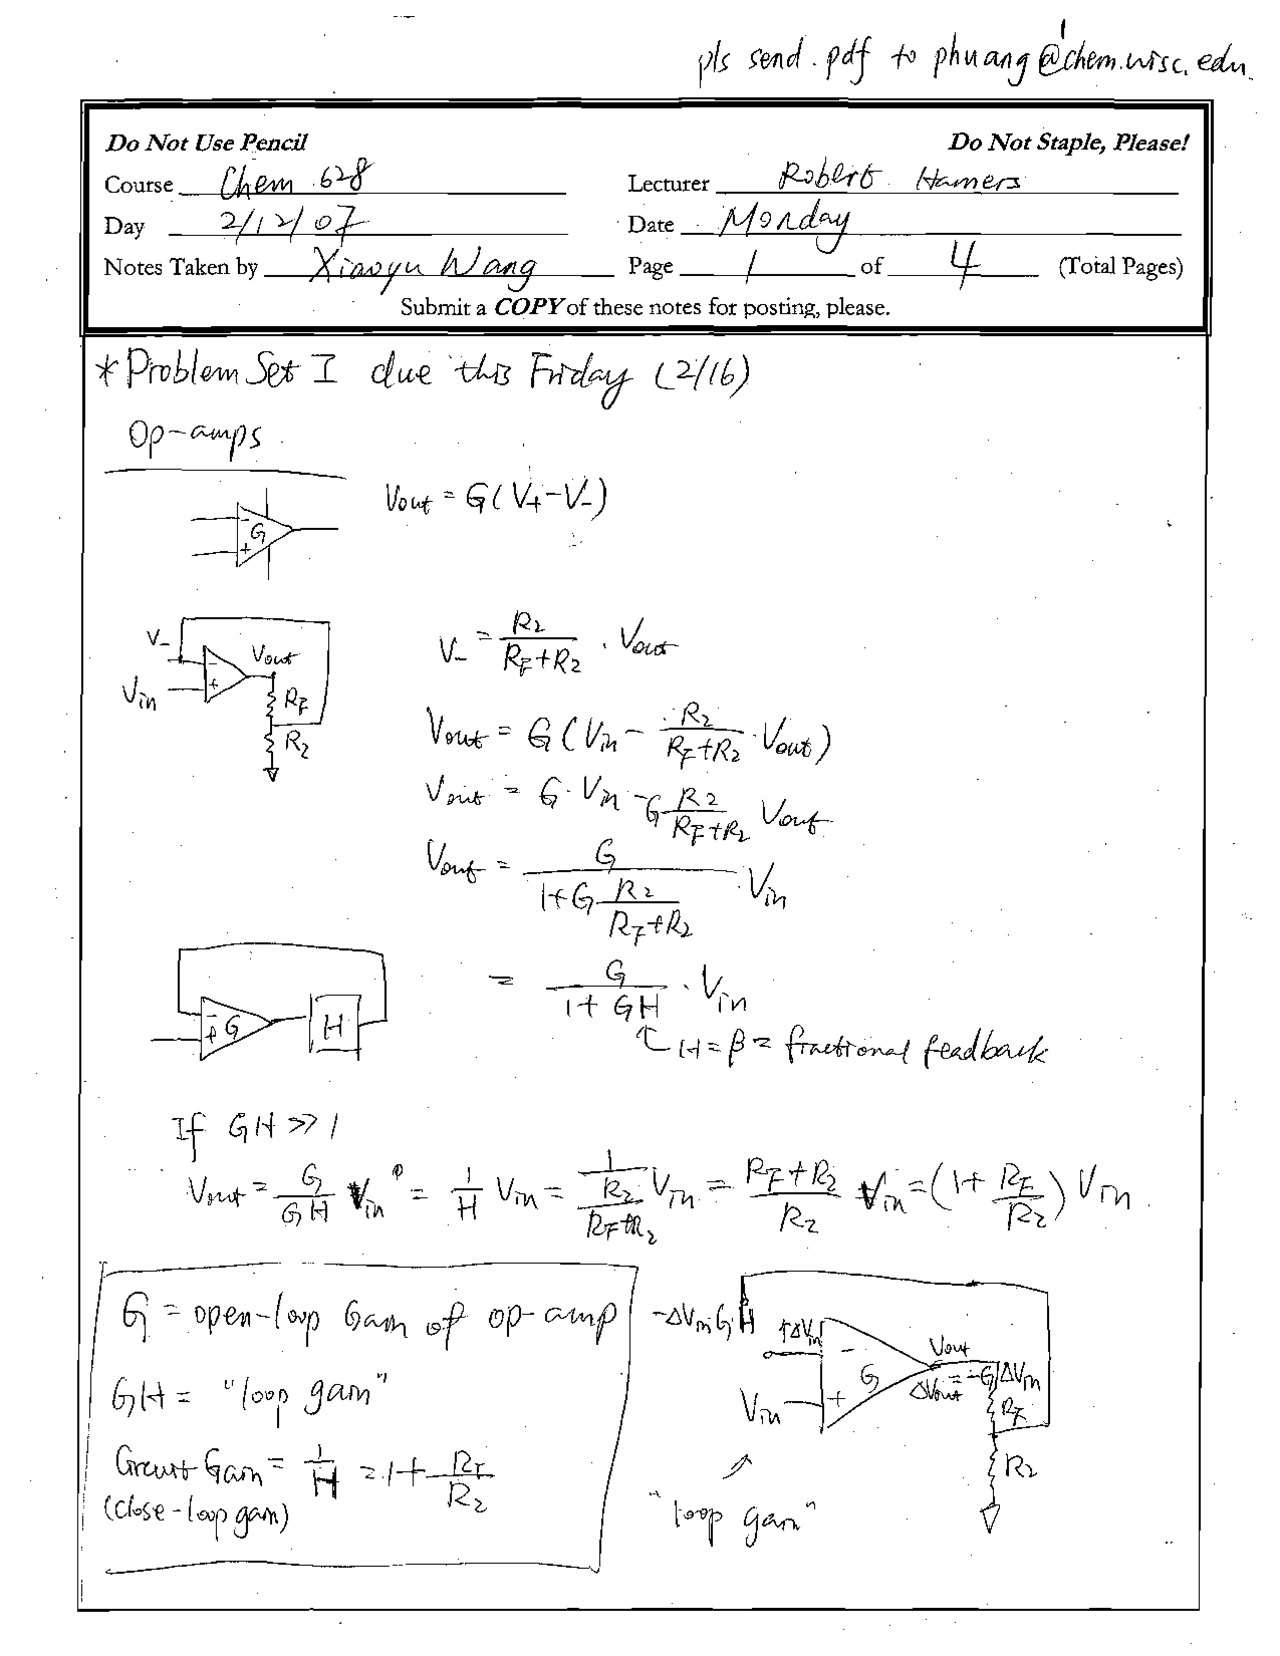 pls send .pdf to phuang@chem.wisc.edu
Do Not Use Pencil Do Not Staple, Please!
Course Chem 628 Lecturer Robert Hamers
Day 2/12/07 Date Monday
Notes Taken by Xiaoyu Wang Page 1 of 4 (Total Pages)
Submit a COPY of these notes for posting, please.
* Problem Set I due this Friday (2/16)
Op-amps
Vout = G(V+ - V-)
- G +
V- = R2/(RF+R2) · Vout
V- Vout
Vin - +
RF
R2
Vout = G(Vin - R2/(RF+R2) · Vout)
Vout = G·Vin - G R2/(RF+R2) Vout
Vout = G/(1+G R2/(RF+R2)) · Vin
= G/(1+GH) · Vin
- + G H
↑ H = β = fractional feedback
If GH >> 1
Vout = G/GH Vin = 1/H Vin = 1/(R2/(RF+R2)) Vin = (RF+R2)/R2 Vin = (1 + RF/R2) Vin
G = open-loop Gain of op-amp
GH = "loop gain"
Circuit Gain = 1/H = 1 + RF/R2
(close-loop gain)
-ΔVin G H
+ΔVin - Vout
G ΔVout = -G ΔVin
Vin + RF
R2
"loop gain"